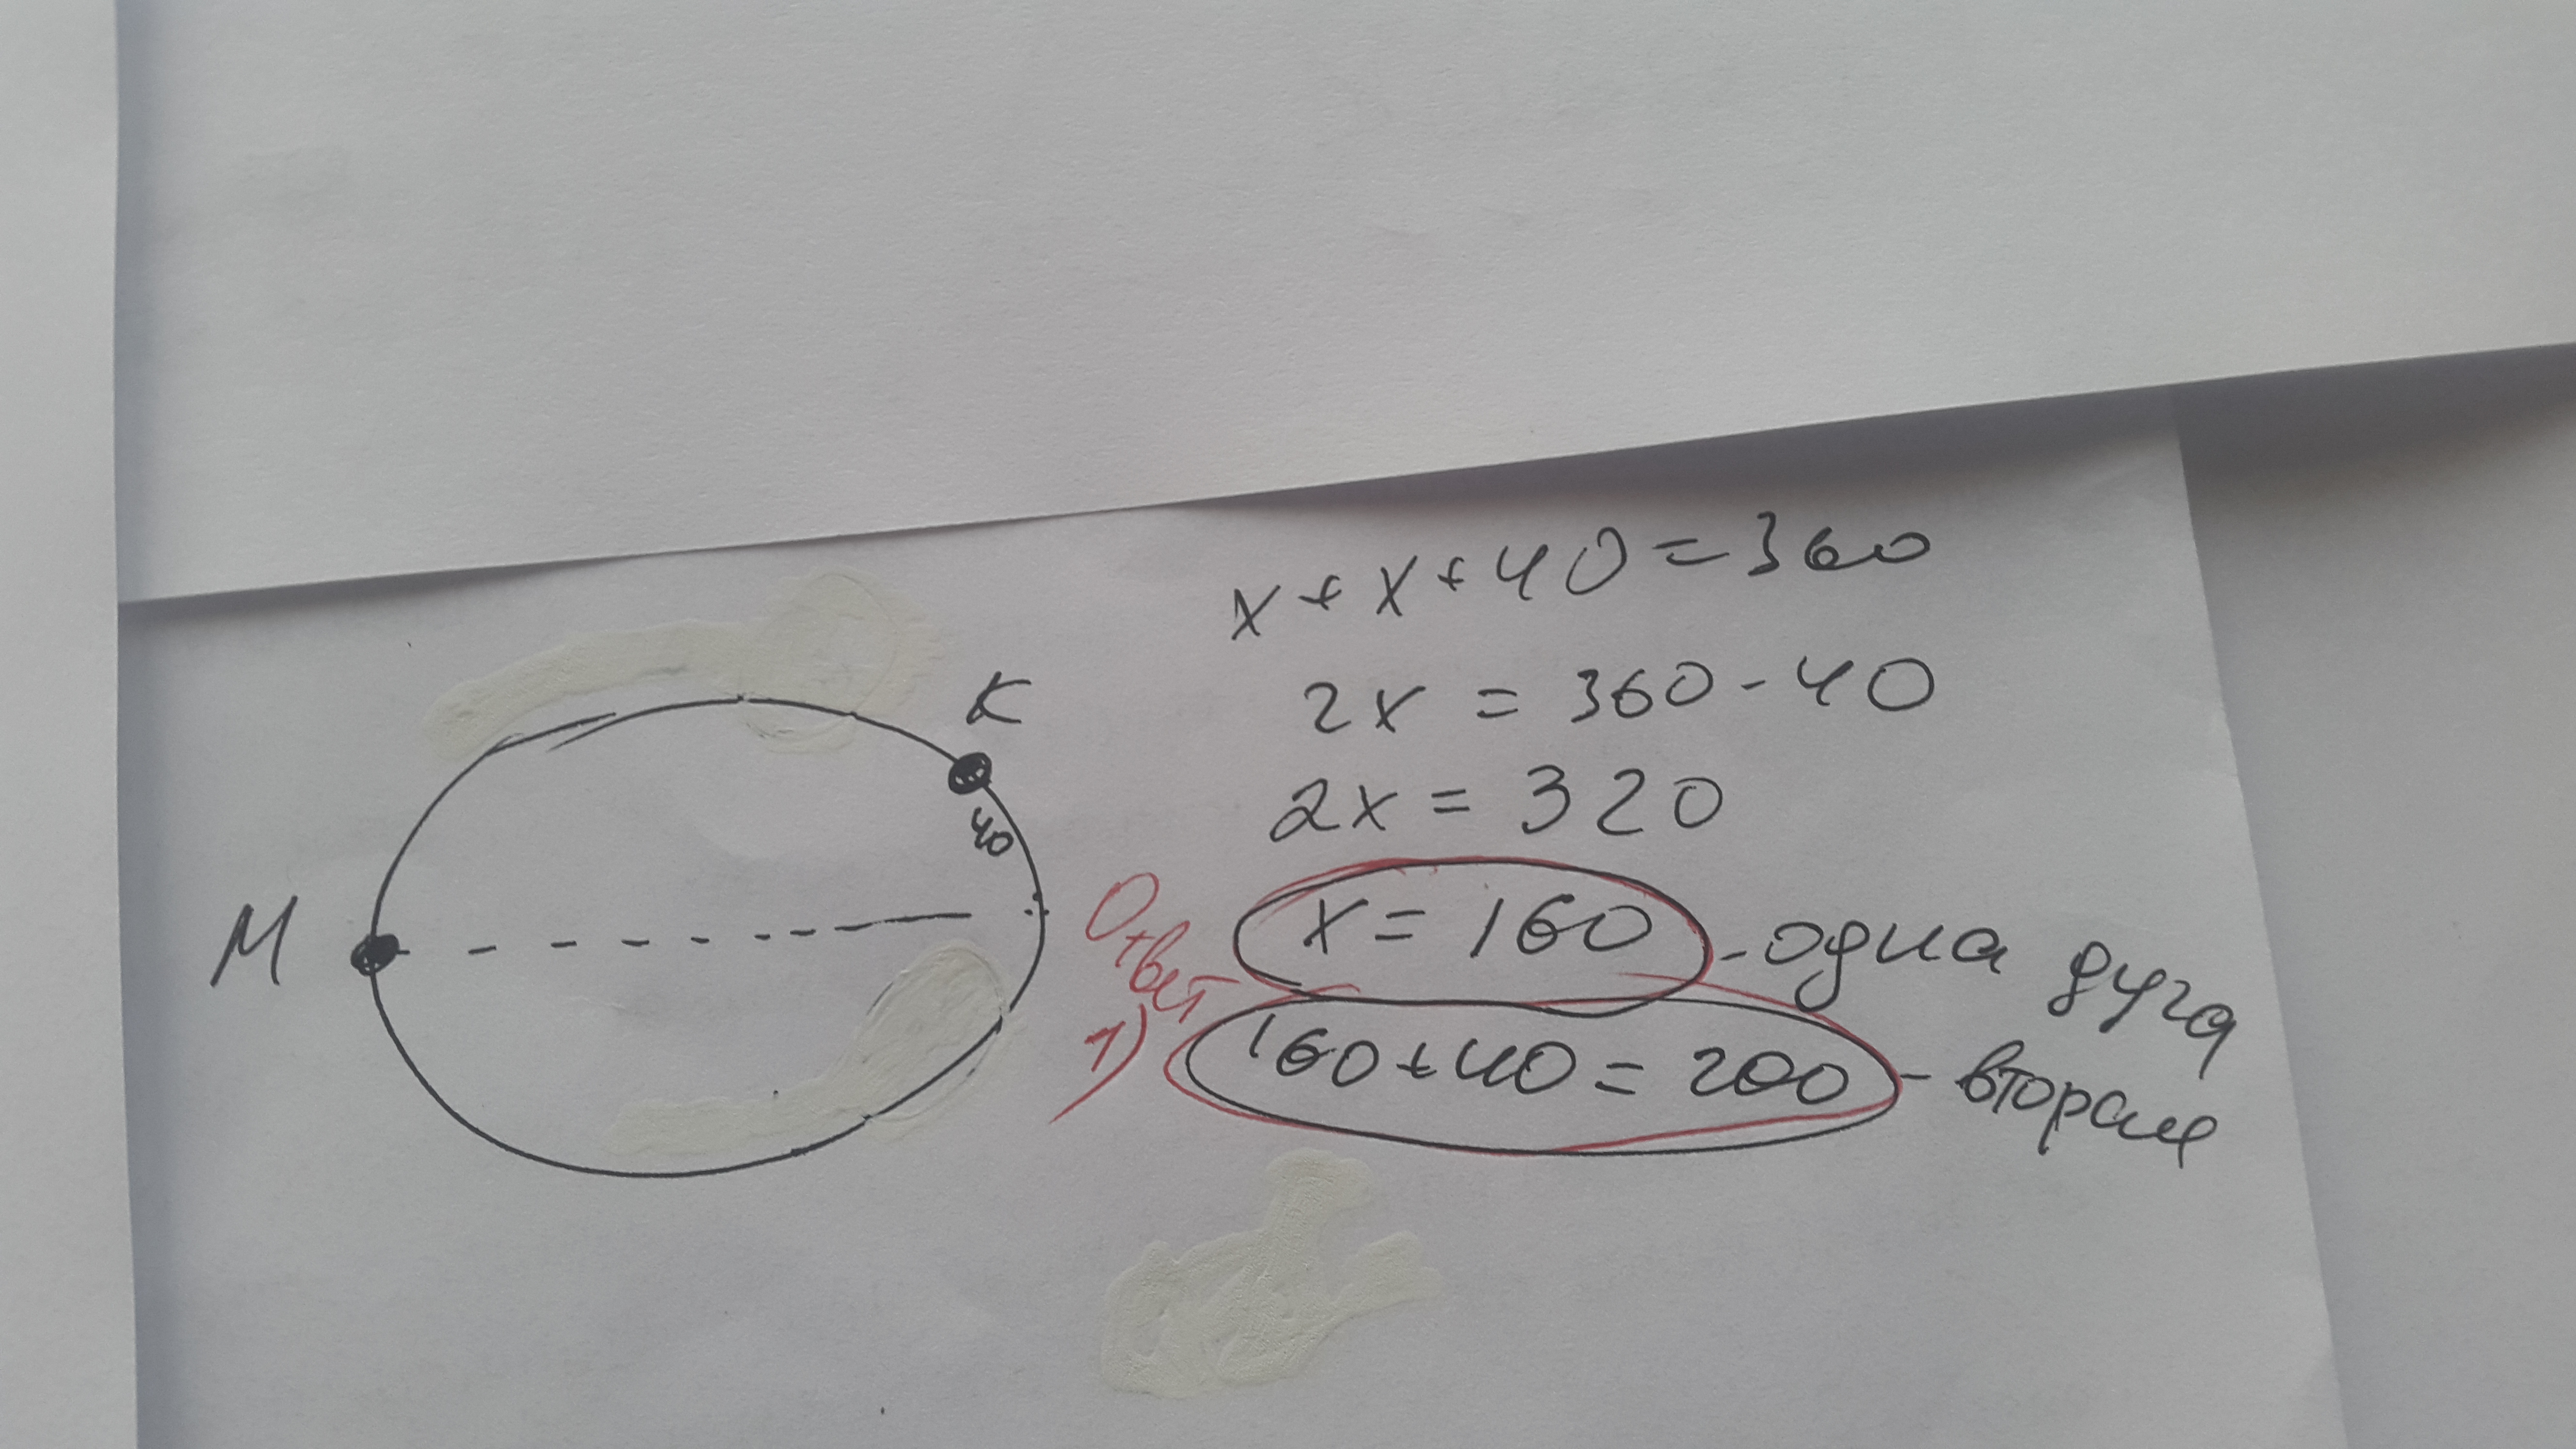 x + x + 40 = 360
2x = 360 - 40
2x = 320
x = 160 - одна дуга
160 + 40 = 200 - вторая
Ответ
1)
K
40
M